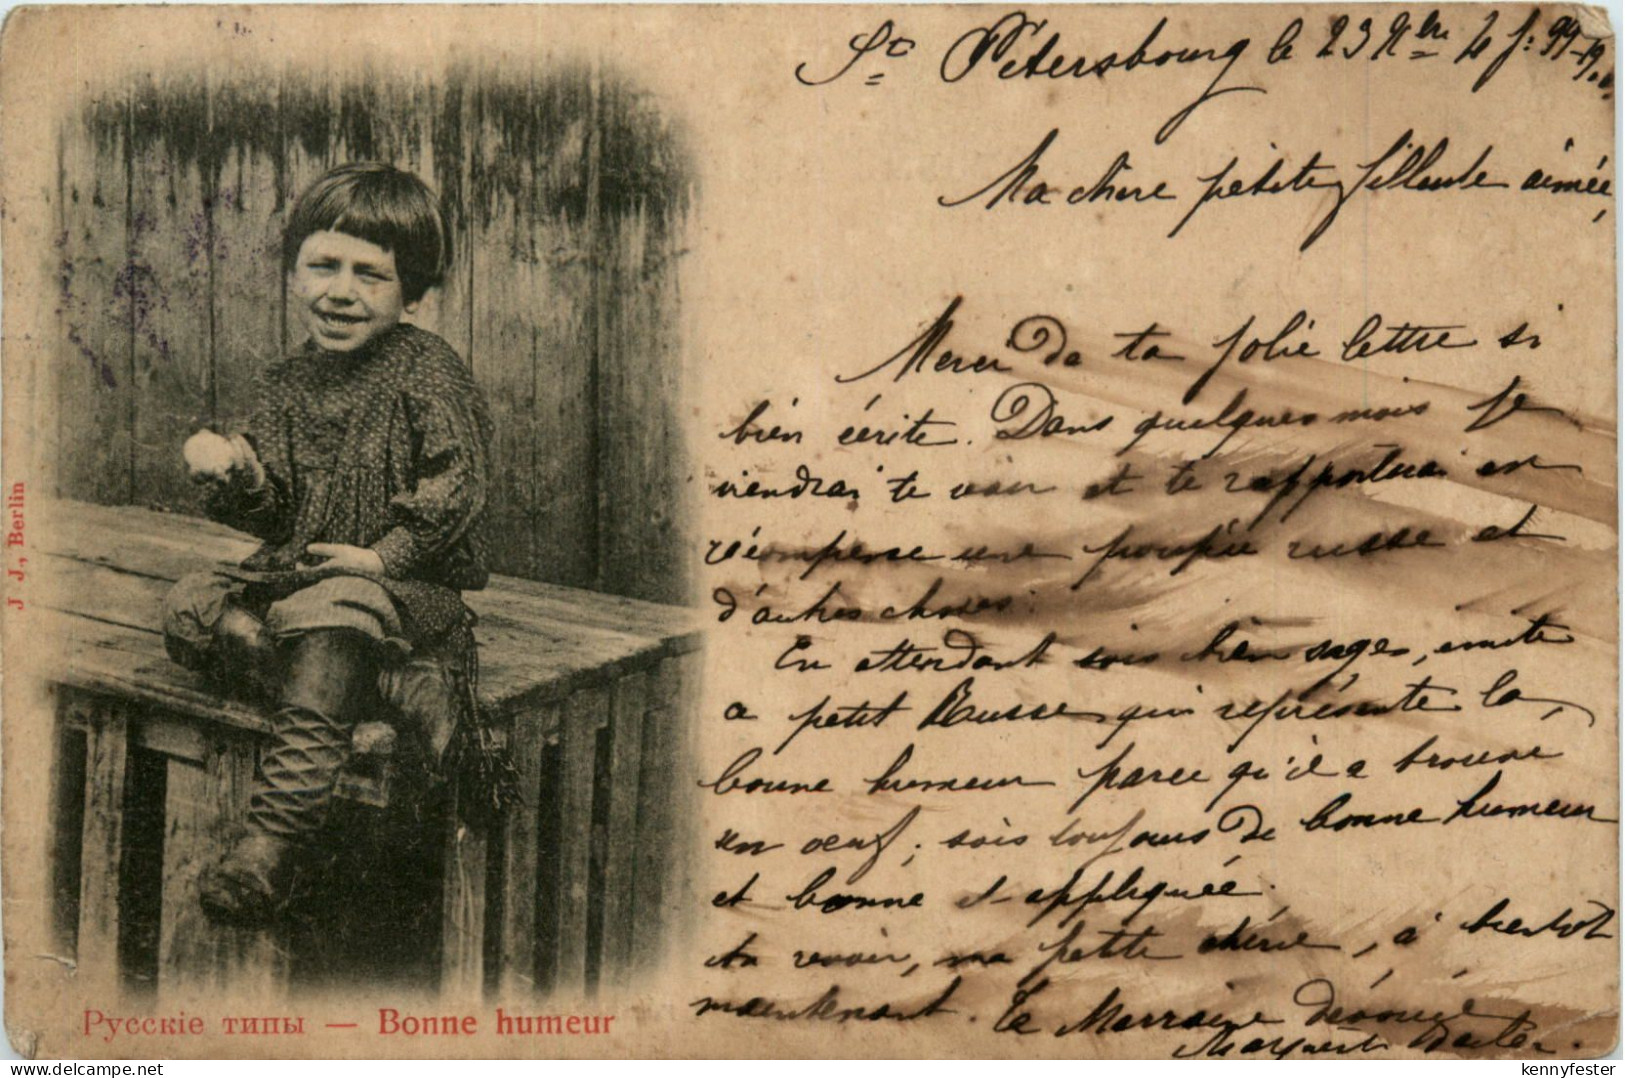 St Petersbourg le 23 Xbre 4 f: 99-19..
Ma chère petite filleule aimée,
Merci de ta jolie lettre si
bien écrite. Dans quelques mois je
viendrai te voir et te rapporterai en
récompense une poupée russe et
d'autres choses.
En attendant sois bien sage, imite
ce petit Russe qui représente la
bonne humeur parce qu'il a trouvé
un oeuf; sois toujours de bonne humeur
et bonne et appliquée.
Au revoir, ma petite chérie, à bientôt
maintenant. Ta Marraine dévouée
Marguerite
J J., Berlin
Русскіе типы — Bonne humeur
kennyfester